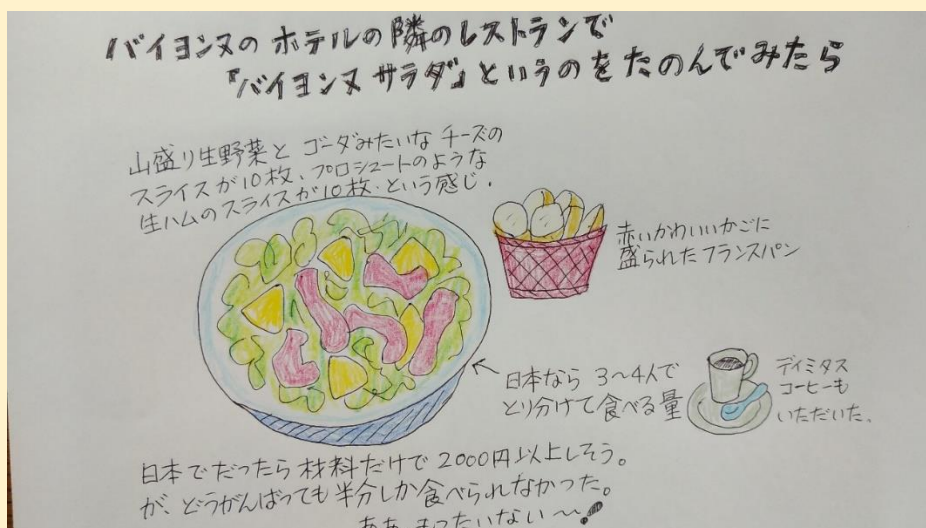 バイヨンヌの ホテルの 隣の レストランで
『バイヨンヌ サラダ』というのを たのんでみたら
山盛り生野菜と ゴーダみたいな チーズの
スライスが10枚、プロシュートのような
生ハムのスライスが10枚・という感じ.
赤いかわいいかごに
盛られた フランスパン
←日本なら 3〜4人で
とり分けて食べる量
ディミタス
コーヒーも
いただいた、
日本でだったら 材料だけで 2000円以上しそう。
が、どうがんばっても 半分しか食べられなかった。
ああ もったいない〜!